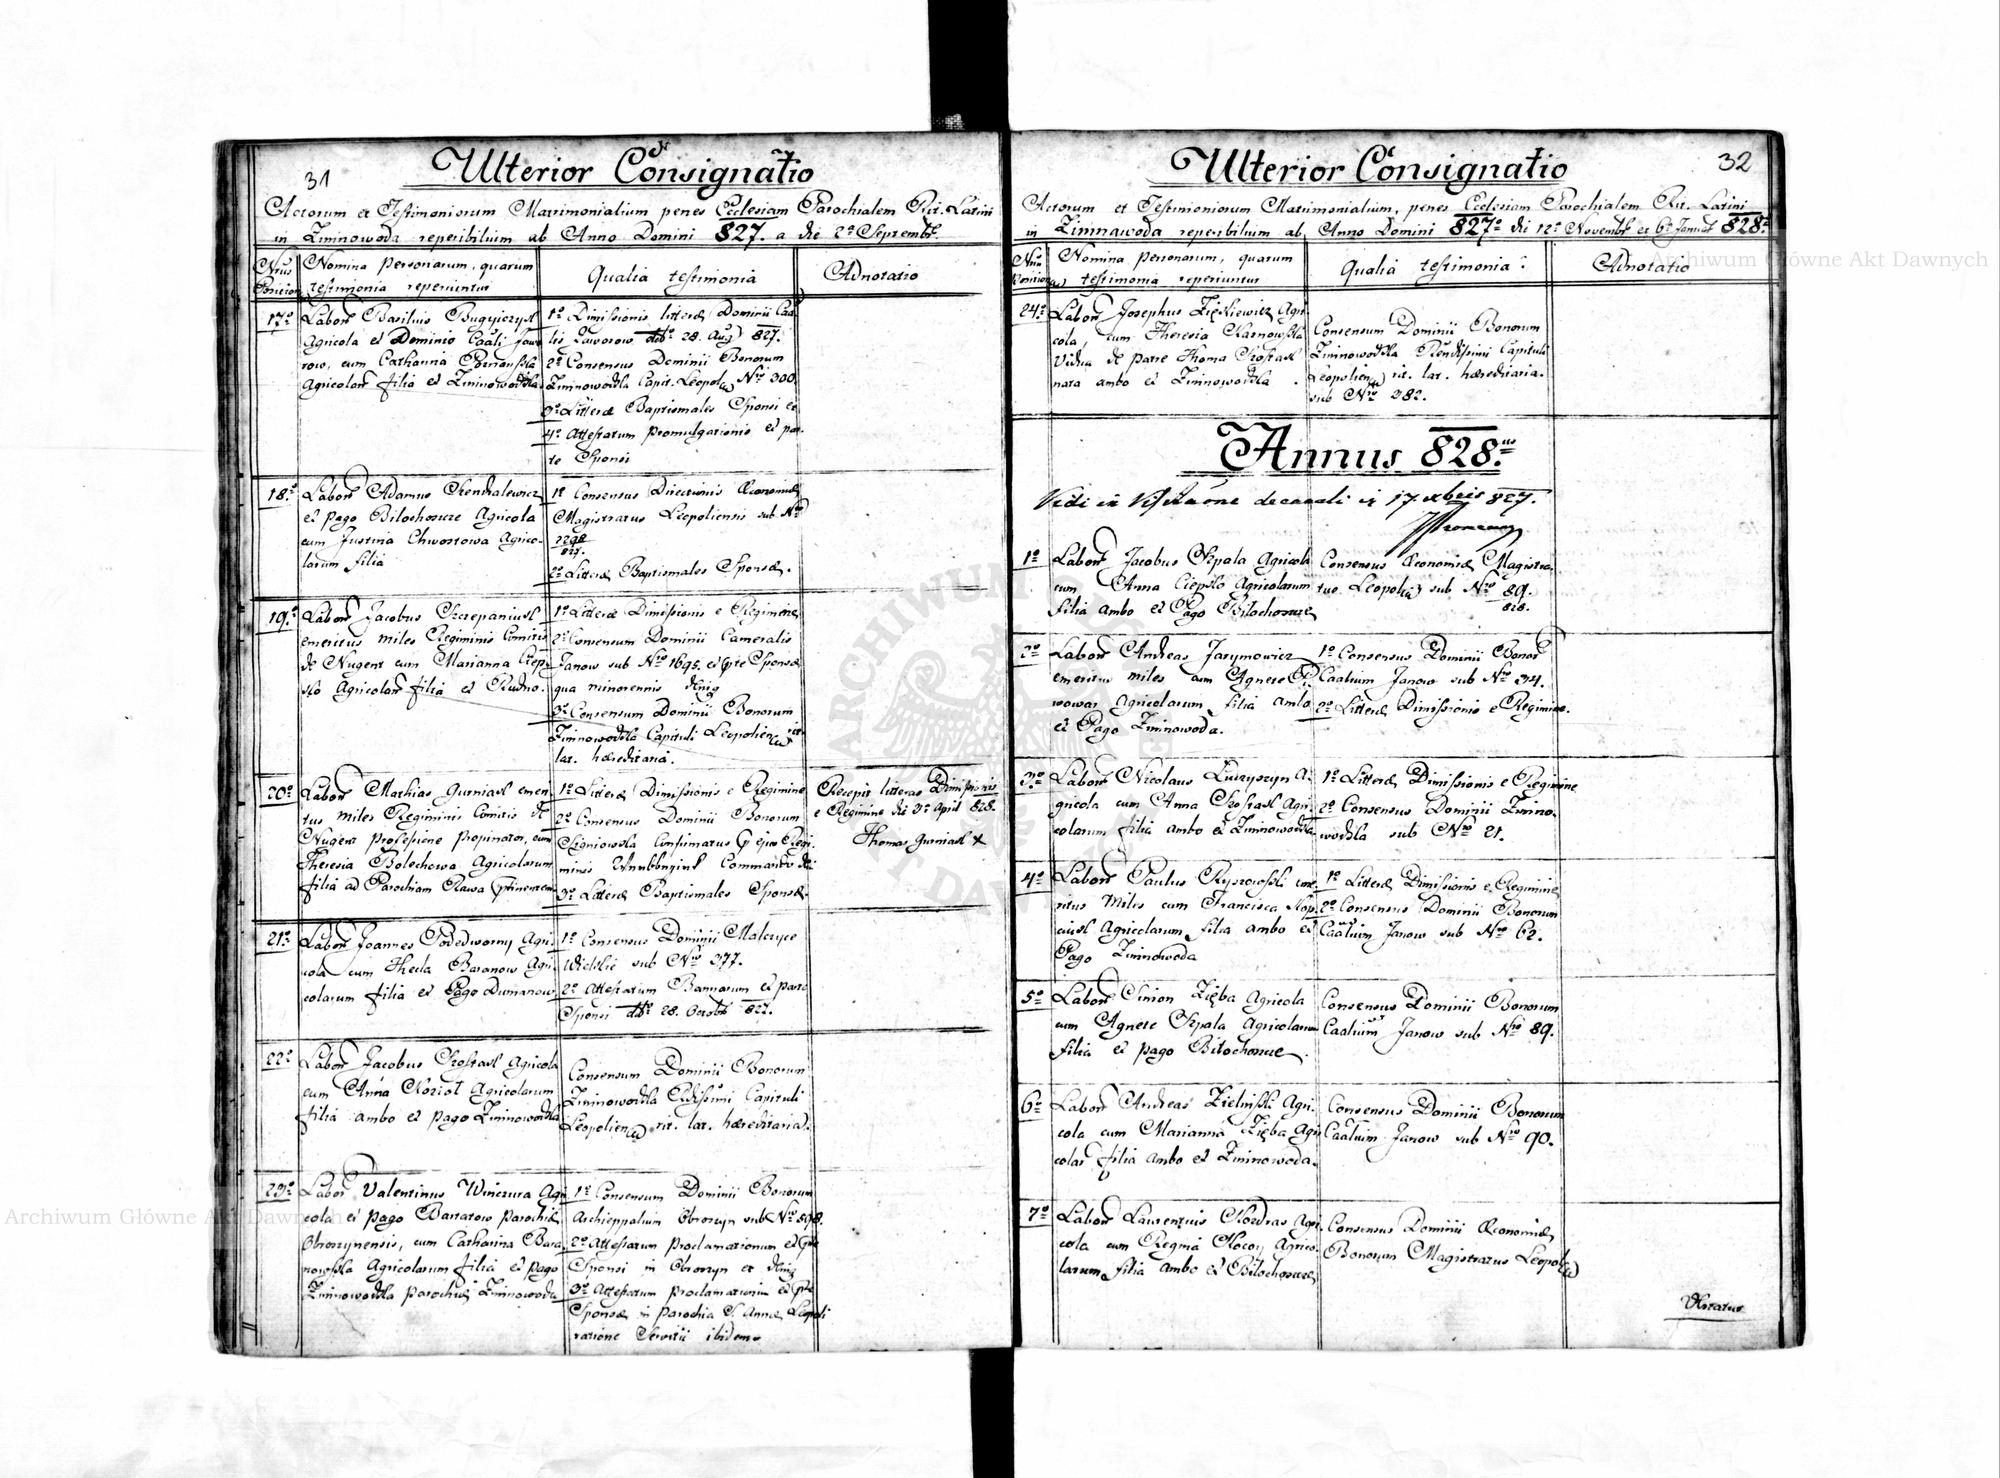 31
Ulterior Consignatio
Actorum et Testimoniorum Matrimonialium penes Ecclesiam Parochialem Rit. Latini
in Zimnowoda reperibilium ab Anno Domini 827. a die 2ª Septembr.
Nrus Posicion
Nomina personarum, quarum
testimonia reperiuntur
Qualia testimonia
Adnotatio
17º
Labor Basilius
Agricola ex Dominio Caali Jawo
row, cum Catharina
Agricolar filia ex Zimnowodka
1º Dimissionis litteræ Dominii Caa
lis Jaworow 28. Aug 827.
2º Consensus Dominii Bonorum
Zimnowodka Capit. Leopol Nro 300.
3º Litteræ Baptismales Sponsi et
4º Attestatum promulgationis ex par
te Sponsi
18º
Labor Adamus
ex pago Bilochorsce Agricola
cum Justina Chwostowa Agrico-
larum filia
1º Consensus Directionis Œconomiæ
Magistratus Leopoliensis sub Nro
2298
827.
2º Litteræ Baptismales Sponsæ.
19º
Labor Jacobus Szczepaniusk
emeritus miles Regiminis Comitis
de Nugent cum Marianna Ciep
slo Agricolar filia ex Rudno.
1º Litteræ Dimissionis e Regimine
2º Consensum Dominii Cameralis
Janow sub Nro 1695. ex pte Sponsæ
qua minorennis
3º Consensum Dominii Bonorum
Zimnowodka Capituli Leopolien rit.
lat. hæreditaria.
20º
Labor Mathias Gurniask emeri
tus miles Regiminis Comitis de
Nugent professione propinator, cum
Theresia Bolechowa Agricolarum
filia ad Parochiam Rawa ptinentem
1º Litteræ Dimissionis e Regimine
2º Consensus Dominii Bonorum
Confirmatus ejus Regi
minis Commando
3º Litteræ Baptismales Sponsæ
Recepit litteras Dimissionis
e Regimine die 3ª April 828.
Thomas Gurniask +
21º
Labor Joannes Podedworny Agri
cola cum Thecla Baranow Agri
colarum filia ex Pago Dumanow
1º Consensus Dominii Malczyce
Wielkie sub Nro 377.
2º Attestatum Bannorum ex parte
Sponsi 28. Octobr 827.
22º
Labor Jacobus Chostask Agricola
cum Anna Koziol Agricolarum
filia ambo ex pago Zimnowodka
Consensum Dominii Bonorum
Zimnowodka Capituli
Leopolien rit. lat. hæreditaria.
23º
Labor Valentinus Winczura Agri
cola ex pago Bartatow parochiæ
Obroszynensis, cum Catharina Bara
nowska Agricolarum filia ex pago
Zimnowodka parochiæ Zimnowoda
1º Consensum Dominii Bonorum
Archieppalium Obroszyn sub Nro 598.
2º Attestatum proclamationum ex pte
Sponsi in Obroszyn et
3º Attestatum proclamationum ex pte
Sponsæ in parochia S. Annæ Leopoli
ratione Servitii ibidem
32
Ulterior Consignatio
Actorum et Testimoniorum Matrimonialium, penes Ecclesiam Parochialem Rit. Latini
in Zimnawoda reperibilium ab Anno Domini 827º die 12ª Novembr et 6ª Januar 828º
Nrus
Nomina personarum, quarum
testimonia reperiuntur
Qualia testimonia
Adnotatio
24º
Labor Josephus Zięskiewicz Agri
cola, cum Theresia Karnowska
Vidua de patre Thoma Chostask
nata ambo ex Zimnowodka.
Consensum Dominii Bonorum
Zimnowodka Rendissimi Capituli
Leopolien rit. lat. hæreditaria.
sub Nro 382.
Annus 828us
Vidi in Visitatione decanali die 17 xbris 827.
1º
Labor Jacobus Szpala Agricola
cum Anna Ciepslo Agricolarum
filia ambo ex Pago Bilochorsce
Consensus Œconomiæ Magistra
tus Leopolis sub Nro 89.
828.
2º
Labor Andreas Jarymowicz
emeritus miles cum Agnete
Agricolarum filia ambo
ex Pago Zimnowoda.
1º Consensus Dominii Bonor
Caalium Janow sub Nro 34.
2º Litteræ Dimissionis e Regimine.
3º
Labor Nicolaus A-
gricola cum Anna Chostask Agri
colarum filia ambo ex Zimnowodka
1º Litteræ Dimissionis e Regimine
2º Consensus Dominii Zimno-
wodka sub Nro 21.
4º
Labor Paulus eme
ritus Miles cum Francisca
Agricolarum filia ambo ex
Pago Zimnowoda
1º Litteræ Dimissionis e Regimine
2º Consensus Dominii Bonorum
Caalium Janow sub Nro 62.
5º
Labor Simon Zięba Agricola
cum Agnete Szpala Agricolarum
filia ex pago Bilochorsce.
Consensus Dominii Bonorum
Caalium Janow sub Nro 89.
6º
Labor Andreas Zielinski Agri-
cola cum Marianna Zięba Agri
colar filia ambo ex Zimnowoda.
Consensus Dominii Bonorum
Caalium Janow sub Nro 90.
7º
Labor Laurentius Kozdras Agri
cola cum Regina Kocoy Agrico
larum filia ambo ex Bilochorsce
Consensus Dominii Œconomiæ
Bonorum Magistratus Leopol
Archiwum Główne Akt Dawnych
Archiwum Główne Akt Dawnych
ARCHIWUM GŁÓWNE AKT DAWNYCH